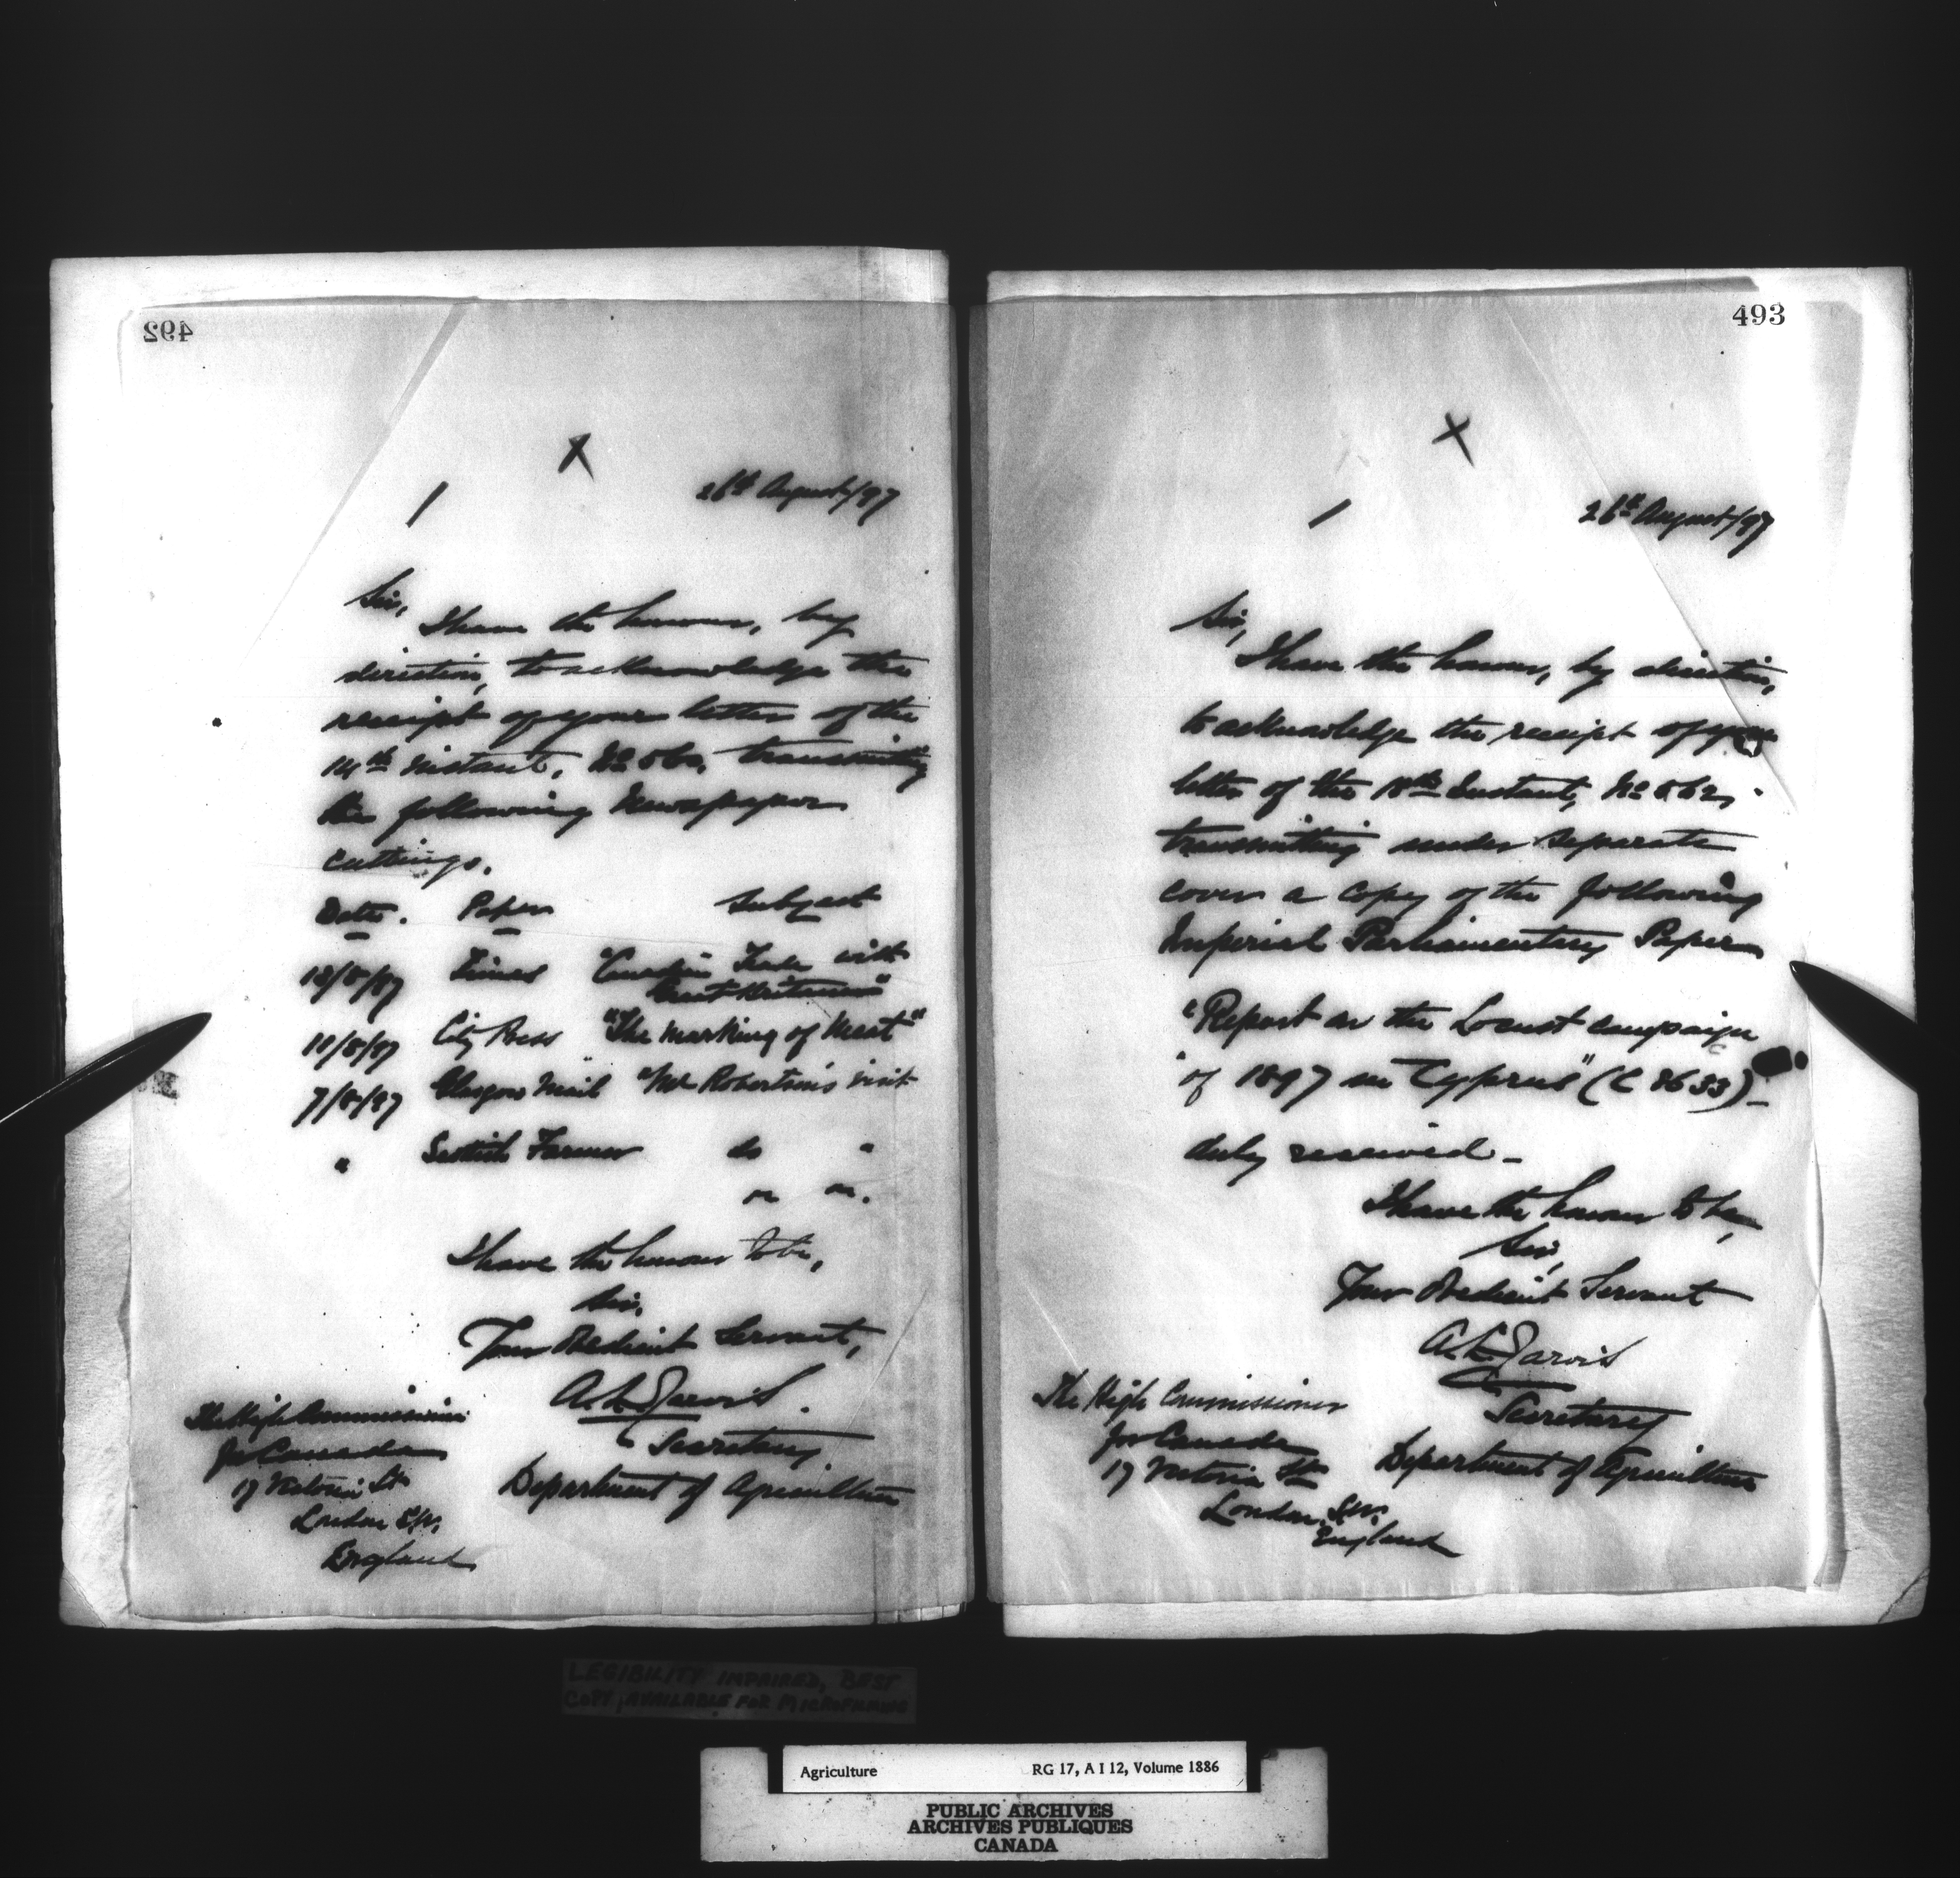 492
X
26th August/97
Sir,
I have the honour, by
direction, to acknowledge the
receipt of your letter of the
14th instant, No 560, transmitting
the following Newspaper
cuttings.
Date. Paper Subject
12/8/97 Times "Canadian Trade with
Great Britain"
11/8/97 City Press "The Marking of Meat"
7/8/97 Glasgow Mail "Mr Robertson's visit
" Scottish Farmer do "
I have the honour to be,
Sir,
Your Obedient Servant,
A. L. Jarvis.
Secretary
Department of Agriculture
The High Commissioner
for Canada
17 Victoria St
London S.W.
England
493
X
26th August/97
Sir,
I have the honour, by direction,
to acknowledge the receipt of your
letter of the 18th Instant, No 562,
transmitting under separate
cover a copy of the following
Imperial Parliamentary Paper
"Report on the Locust campaign
"of 1897 in Cyprus" (C 8633)_
duly received_
I have the honour to be,
Sir,
Your Obedient Servant
A. L. Jarvis
Secretary
Department of Agriculture
The High Commissioner
for Canada
17 Victoria St
London. S.W.
England
LEGIBILITY IMPAIRED, BEST
COPY AVAILABLE FOR MICROFILMING
Agriculture RG 17, A I 12, Volume 1886
PUBLIC ARCHIVES
ARCHIVES PUBLIQUES
CANADA